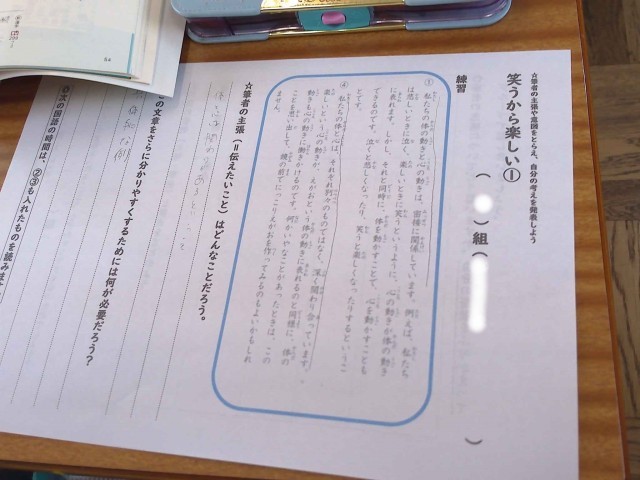 ☆筆者の主張や意図をとらえ、自分の考えを発表しよう
笑うから楽しい①
(　)組(　)
練習
① 私たちの体の動きと心の動きは、密接に関係しています。例えば、私たち
は悲しいときに泣く、楽しいときに笑うというように、心の動きが体の動き
に表れます。しかし、それと同時に、体を動かすことで、心を動かすことも
できるのです。泣くと悲しくなったり、笑うと楽しくなったりするというこ
とです。
④ 私たちの体と心は、それぞれ別々のものではなく、深く関わり合っています。
楽しいという心の動きが、えがおという体の動きに表れるのと同様に、体の
動きも心の動きに働きかけるものです。何かいやなことがあったときは、この
ことを思い出して、鏡の前でにっこりえがおを作ってみるのもよいかもしれ
ません。
☆筆者の主張(=伝えたいこと)はどんなことだろう。
この文章をさらに分かりやすくするためには何が必要だろう?
具体的な例
◎次の国語の時間は、②③も入れたものを読みます
54